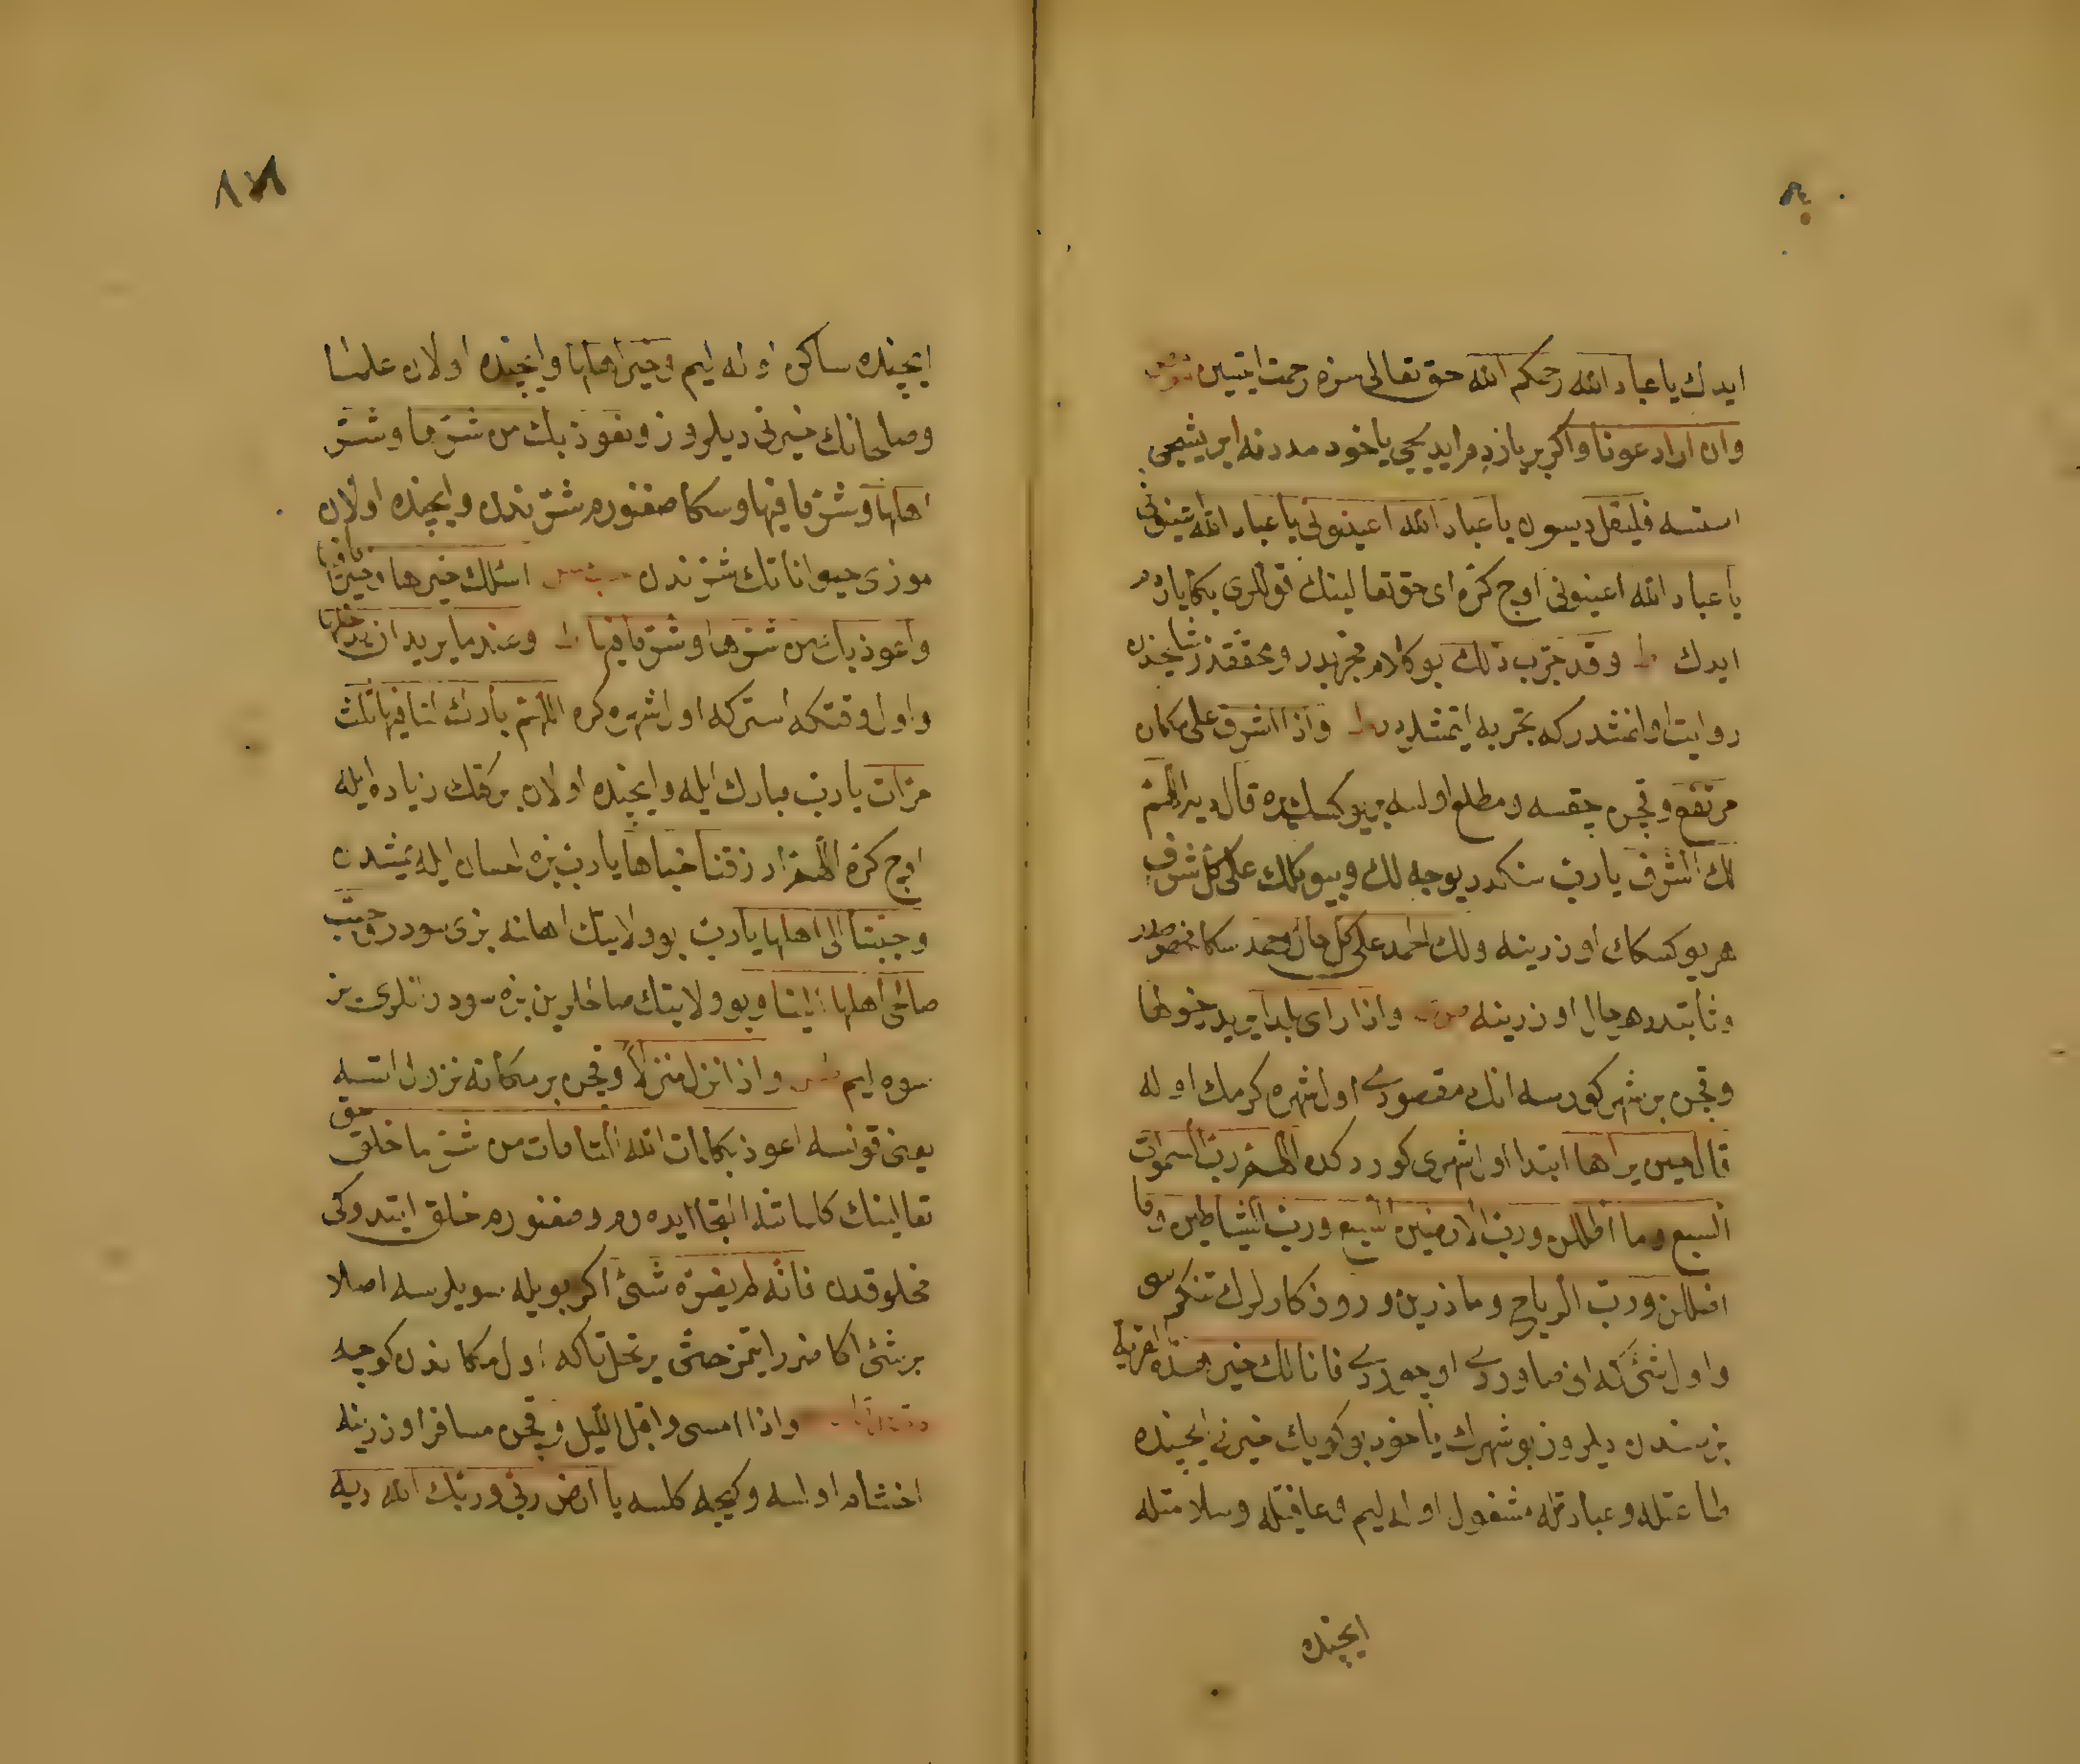 ايدك يا عباد الله رحمكم الله حق تعالى سزه رحمت ايتسين
وان اراد عونا واكر بر ياردم ايديجي ياخود مددنه ايريشيجي
استسه فليقل ديسون يا عباد الله اعينوني يا عباد الله اعينوني
يا عباد الله اعينوني اوج كره اى حق تعالينك قوللرى بكا ياردم
ايدك ط وقد جرب ذلك بو كلام مجربدر ومحققدر مشايخدن
روايت اولنمشدر كه تجربه ايتمشلردر ط واذا اشرف على مكان
مرتفع وقچن چقسه ومطلع اولسه بر يوكسك يره قال دير اللهم
لك الشرف يا رب سنكدر يوجه لك وبيوكلك على كل شرف
هر يوكسكك اوزرينه ولك الحمد على كل حال وحمد سكا مخصوصدر
وثابتدر هر حال اوزرينه واذا راى بلدا يريد دخولها
وقچن بر شهر كورسه انك مقصودى اول شهره كرمك اوله
قال حين يراها ابتدا اول شهرى كوردكده اللهم رب السموات
السبع وما اظللن ورب الارضين السبع ورب الشياطين وما
اضللن ورب الرياح وما ذرين وروزكارلرك تنكريسى
واول شئ كه انى صاوردى اوچوردى فانا نسألك خير هذه القرية
بز سندن ديلروز بو شهرك ياخود بو كويك خيرنى ايچنده
طاعتله وعبادتله مشغول اوله ليم وعافيتله وسلامتله
ايچنده
٨١
ايچنده ساكن اوله ليم وخير اهلها وايچنده اولان علما
وصلحانك خيرنى ديلروز ونعوذ بك من شرها وشر
اهلها وشر ما فيها وسكا صغنورم شرندن وايچنده اولان
موذى حيواناتك شرندن اسئلك خيرها وخير ما فيها
واعوذ بك من شرها وشر ما فيها ط وعند ما يريد ان يدخلها
واول وقتكه استركه اول شهره كره اللهم بارك لنا فيها ثلث
مرات يا رب مبارك ايله وايچنده اولان بركتك زياده ايله
اوج كره اللهم ارزقنا جناها يا رب بزه احسان ايله يمشدن
وحببنا الى اهلها يا رب بو ولايتك اهلنه بزى سودر وحبب
صالحى اهلها الينا وبو ولايتك صالحلرين بزه سودر انلرى بز
سوه ليم واذا نزل منزلا وقچن بر مكانه نزول ايتسه
يعنى قونسه اعوذ بكلمات الله التامات من شر ما خلق حق
تعالينك كلماتنه التجا ايده رم وصغنورم خلق ايتدوكى
مخلوقدن فانه لم يضره شئ اكر بويله سويلرسه اصلا
بر شئ اكا ضرر ايتمز حتى يرتحل تاكه اول مكاندن كوچه
واذا امسى واقبل الليل وقچن مسافر اوزرينه
اخشام اولسه وكيجه كلسه يا ارض ربى وربك الله ديه